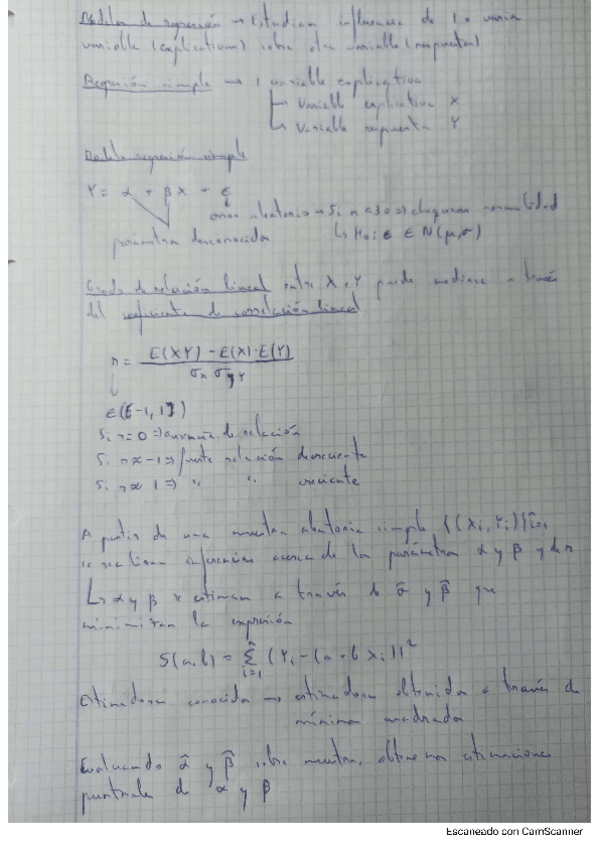 Modelos de regresión → Estudian influencia de 1 o varias
variable (explicativas) sobre otra variable (respuesta)
Regresión simple → 1 variable explicativa
↳ variable explicativa X
↳ variable respuesta Y
Modelo regresión simple
Y = α + βX + ε
error aleatorio → Si n<30 => chequear normalidad
parámetros desconocidos ↳ H₀: ε ∈ N(μ,σ)
Grado de relación lineal entre X e Y puede medirse a través
del coeficiente de correlación lineal
r = E(XY) - E(X)·E(Y) / σx σy
∈ ([-1,1])
Si r=0 => ausencia de relación
Si r≈-1 => fuerte relación decreciente
Si r≈1 => " " creciente
A partir de una muestra aleatoria simple {(Xi, Yi)}ⁿi=1
se realizan inferencias acerca de los parámetros α y β y de r
↳ α y β se estiman a través de α̂ y β̂ que
minimizan la expresión
S(a,b) = Σⁿi=1 (Yi - (a + b Xi))²
Estimadores conocidos → estimadores obtenidos a través de
mínimos cuadrados
Evaluando α̂ y β̂ sobre muestra, obtenemos estimaciones
puntuales de α y β
Escaneado con CamScanner